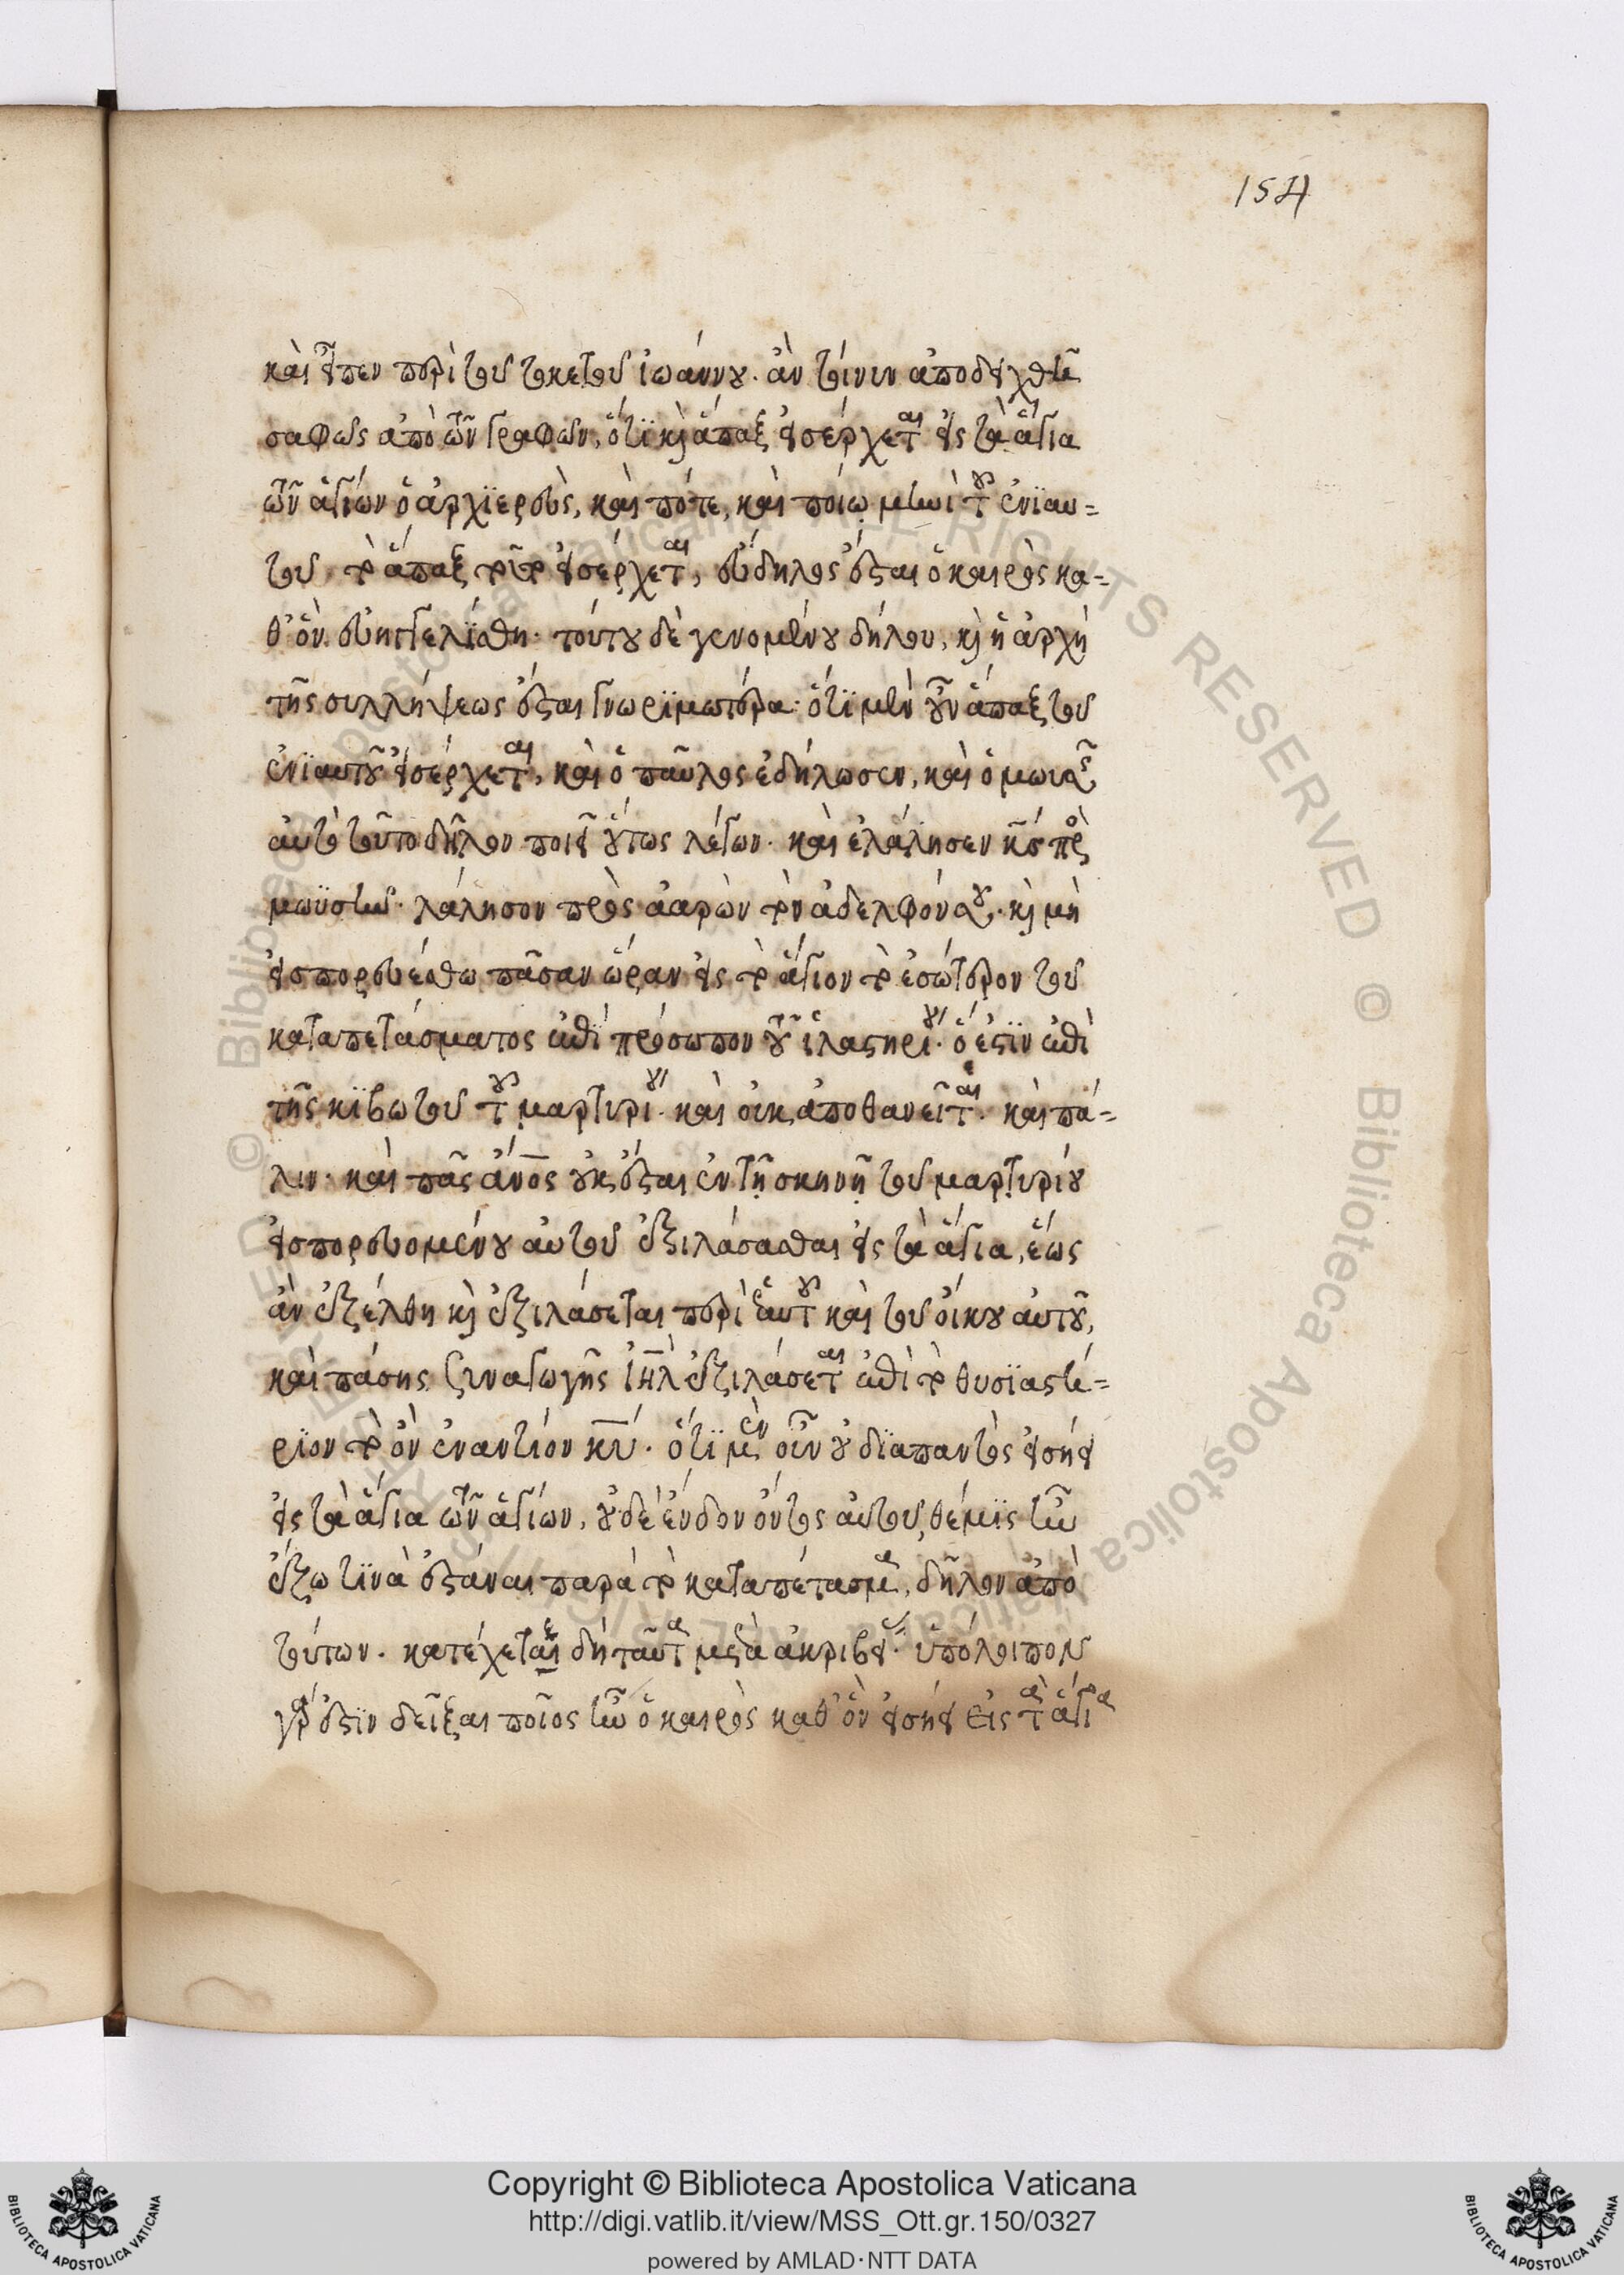 154
καὶ εἶπεν περὶ τοῦ τοκετοῦ ἰωάννου. ἀν τοίνυν ἀποδειχθῆ
σαφῶς ἀπὸ τῶν γραφῶν, ὅτι καὶ ἅπαξ εἰσέρχεται εἰς τὰ ἅγια
τῶν ἁγίων ὁ ἀρχιερεὺς, καὶ πότε, καὶ ποίω μηνὶ τοῦ ἐνιαυ=
τοῦ, τὸ ἅπαξ τοῦτο εἰσέρχεται, εὔδηλος ἔσται ὁ καιρὸς κα=
θ' ὃν εὐηγγελίσθη. τούτου δὲ γενομένου δήλου, καὶ ἡ ἀρχὴ
τῆς συλλήψεως ἔσται γνωριμωτέρα. ὅτι μὲν οὖν ἅπαξ τοῦ
ἐνιαυτοῦ εἰσέρχεται, καὶ ὁ παῦλος ἐδήλωσεν, καὶ ὁ μωυσῆς
αὐτὸ τοῦτο δῆλον ποιεῖ οὕτως λέγων. καὶ ἐλάλησεν κς πρὸς
μωϋσῆν. λάλησον πρὸς ἀαρὼν τὸν ἀδελφόν σου. καὶ μὴ
εἰσπορευέσθω πᾶσαν ὥραν εἰς τὸ ἅγιον τὸ ἐσώτερον τοῦ
καταπετάσματος ἐπὶ πρόσωπον τοῦ ἱλαστηρίου. ὅ ἐστιν ἐπὶ
τῆς κιβωτοῦ τοῦ μαρτυρίου. καὶ οὐκ ἀποθανεῖται. καὶ πά=
λιν. καὶ πᾶς ἄνος οὐκ ἔσται ἐν τῇ σκηνῇ τοῦ μαρτυρίου
εἰσπορευομένου αὐτοῦ ἐξιλάσασθαι εἰς τὰ ἅγια, ἕως
ἀν ἐξέλθη καὶ ἐξιλάσεται περὶ ἑαυτοῦ καὶ τοῦ οἴκου αὐτοῦ,
καὶ πάσης συναγωγῆς ἰηλ ἐξιλάσεται ἐπὶ τὸ θυσιαστή=
ριον τὸ ὂν ἐναντίον κυ. ὅτι μὲν οὖν οὐ διαπαντὸς εἰσήει
εἰς τὰ ἅγια τῶν ἁγίων, οὐδὲ ἔνδον ὄντος αὐτοῦ, θέμις ἦν
ἔξω τινὰ ἑστάναι παρὰ τὸ καταπέτασμα, δῆλον ἀπὸ
τούτων. κατέχεται δὴ ταῦτα μετὰ ἀκριβείας. ὑπόλοιπον
γάρ ἐστιν δεῖξαι ποῖος ἦν ὁ καιρὸς καθ' ὃν εἰσήει εἰς τὰ ἅγια
Copyright © Biblioteca Apostolica Vaticana
http://digi.vatlib.it/view/MSS_Ott.gr.150/0327
powered by AMLAD·NTT DATA
BIBLIOTECA APOSTOLICA VATICANA
BIBLIOTECA APOSTOLICA VATICANA